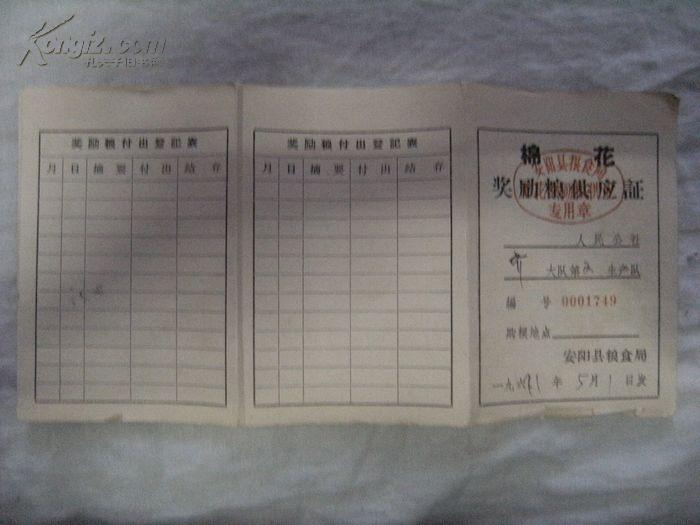 Kongfz.com
孔夫子旧书网
奖励粮付出登記表
月 日 摘要 付出 結存
奖励粮付出登記表
月 日 摘要 付出 結存
棉花
奖励粮供应証
安阳县粮食局
专用章
人民公社
大队第 生产队
編号 0001749
购粮地点
安阳县粮食局
一九六 年 5月1日发